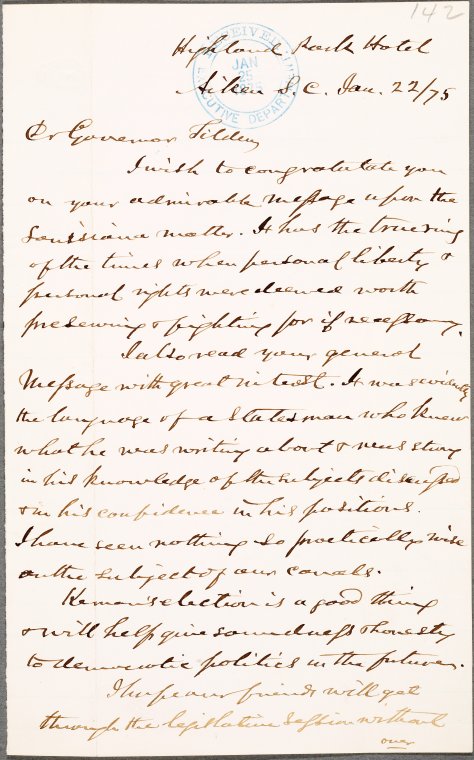 142
Highland Park Hotel
Aiken S. C. Jan. 22/75
RECEIVED
JAN
25
EXECUTIVE DEPAR
Dr Governor Tilden,
I wish to congratulate you
on your admirable message upon the
Louisiana matter. It has the true ring
of the times when personal liberty &
personal rights were deemed worth
preserving & fighting for if necessary.
I also read your general
Message with great interest. It was evidently
the language of a Statesman who knew
what he was writing about & was strong
in his knowledge of the subjects discussed
& in his confidence in his positions.
I have seen nothing so practically wise
on the subject of our canals.
Kernan's election is a good thing
& will help give soundness & honesty
to democratic politics in the future.
I hope our friends will get
through the legislative session without
over